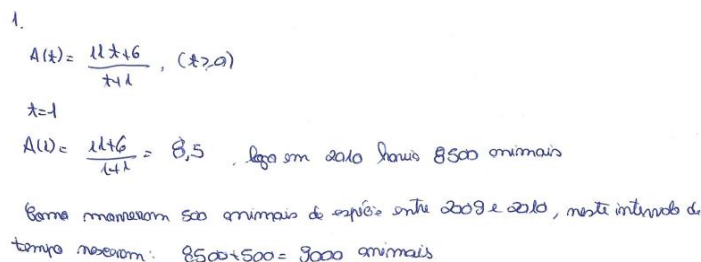 1.
A(t) = (11t+6)/(t+1), (t≥0)
t=1
A(1) = (11+6)/(1+1) = 8,5, logo em 2010 havia 8500 animais
Como morreram 500 animais de espécie entre 2009 e 2010, neste intervalo de
tempo nasceram: 8500+500= 9000 animais